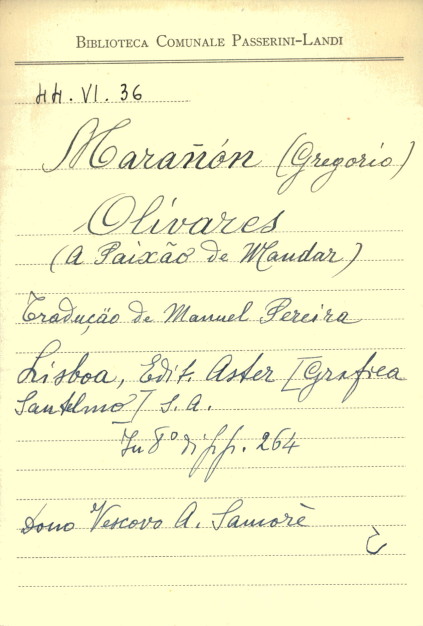 BIBLIOTECA COMUNALE PASSERINI-LANDI
HH. VI. 36
Marañón (Gregorio)
Olivares
(A Paixão de Mandar)
Tradução de Manuel Pereira
Lisboa, Edit. Aster [Grafica
Santelmo] S. A.
In 8° di pp. 264
Dono Vescovo A. Samorè